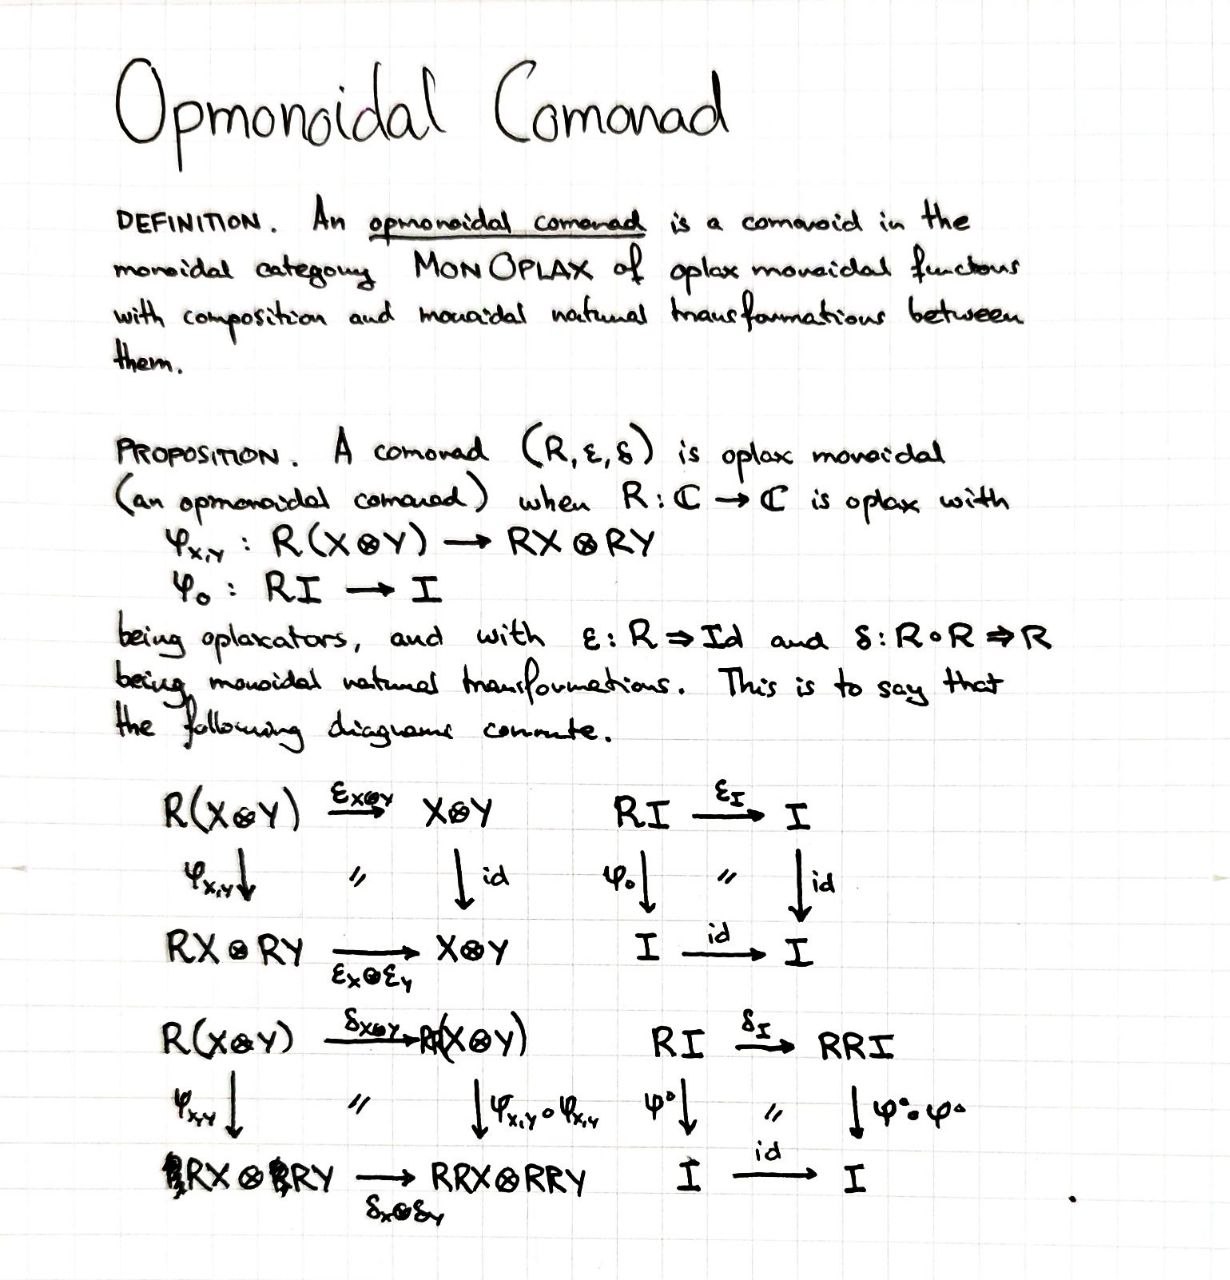 Opmonoidal Comonad
DEFINITION. An opmonoidal comonad is a comonoid in the
monoidal category MONOPLAX of oplax monoidal functors
with composition and monoidal natural transformations between
them.
PROPOSITION. A comonad (R, ε, δ) is oplax monoidal
(an opmonoidal comonad) when R : ℂ → ℂ is oplax with
φ_{X,Y} : R(X⊗Y) → RX⊗RY
φ₀ : RI → I
being oplaxators, and with ε: R ⇒ Id and δ: R∘R ⇒ R
being monoidal natural transformations. This is to say that
the following diagrams conmute.
R(X⊗Y) ε_{X⊗Y} X⊗Y RI ε_I I
φ_{X,Y} ↓ // ↓ id φ₀ ↓ // ↓ id
RX⊗RY → X⊗Y I id I
ε_X⊗ε_Y
R(X⊗Y) δ_{X⊗Y} RR(X⊗Y) RI δ_I RRI
φ_{X,Y} ↓ // ↓ φ_{X,Y}∘φ_{X,Y} φ⁰ ↓ // ↓ φ⁰∘φ⁰
RX⊗RY → RRX⊗RRY I id I
δ_X⊗δ_Y